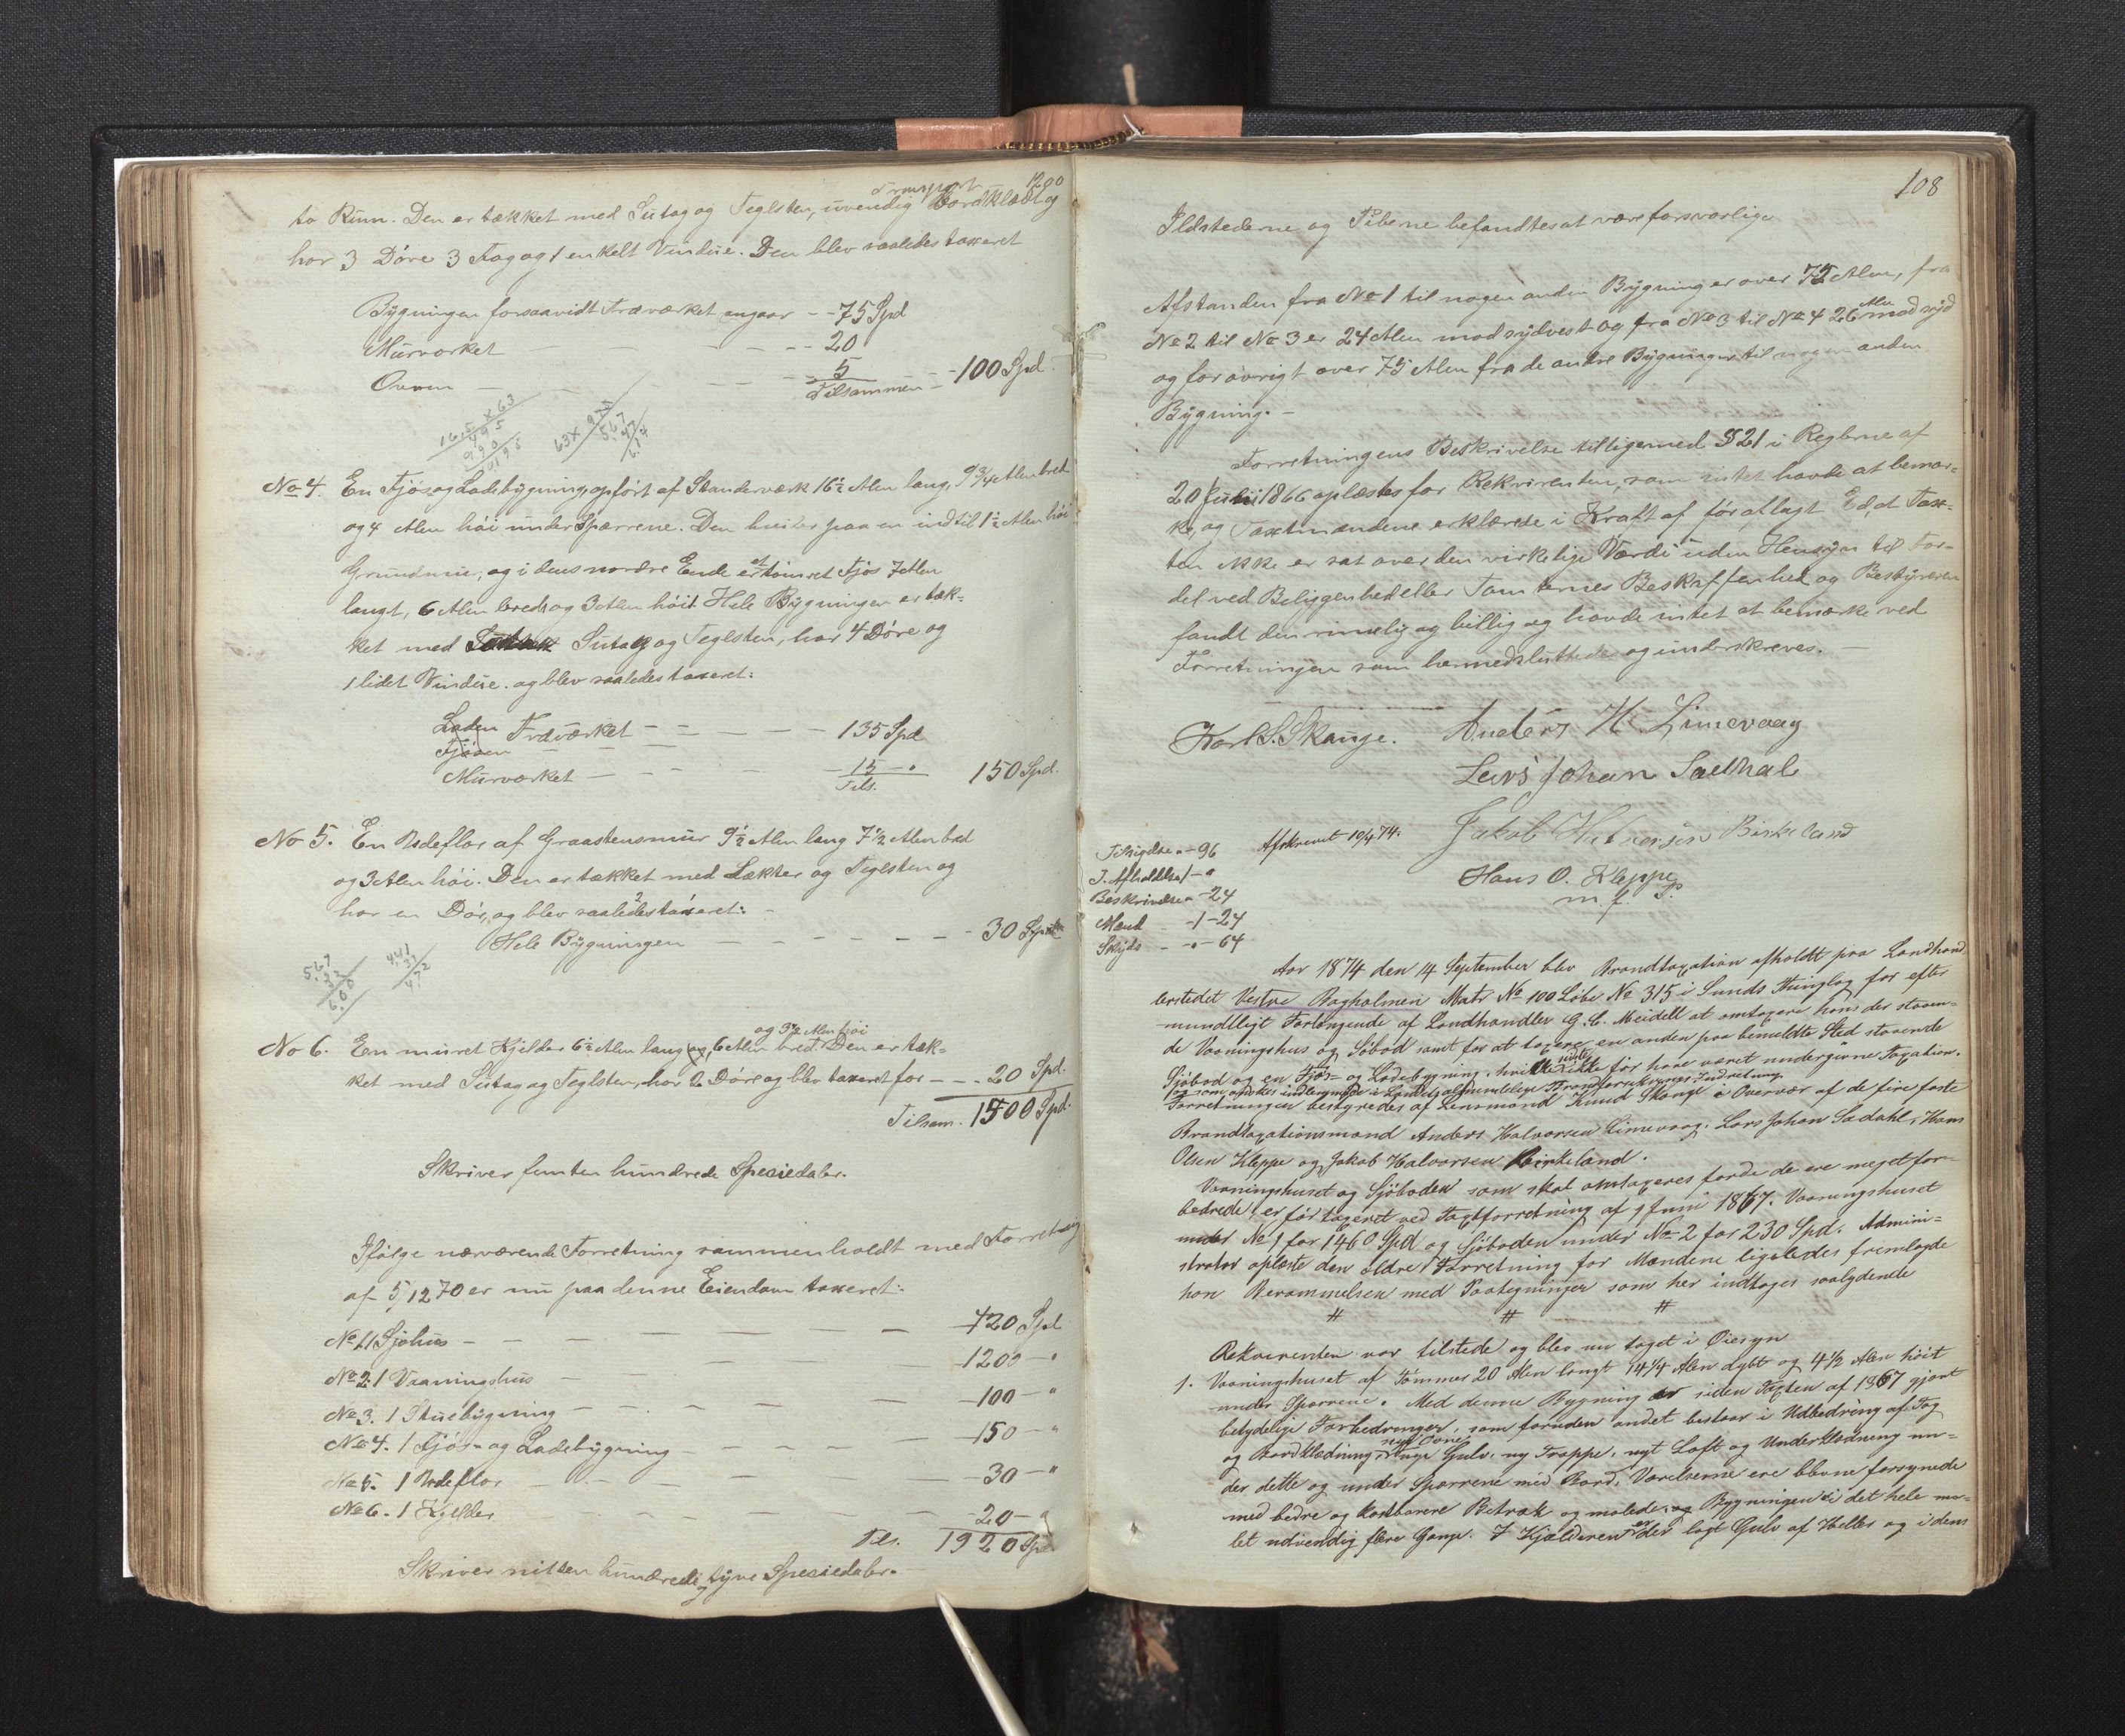 Transport 1200
to Rum. Den er tækket med Sutag og Teglsten, uvendig Bordklædt og
har 3 Døre 3 Fag og 1 enkelt Vindue. Den blev saaledes taxeret
Bygningen forsaavidt Træværket angaar - - 75 Spd
Murværket - - - - 20
Ovnen - - - 5
Tilsammen - - 100 Spd.
No 4. En Fjøs og Ladebygning, opført af Standerværk 16½ Alen lang, 9¾ Alen bred
og 4 Alen høi under Spærrene. Den hviler paa en indtil 1½ Alen høi
Grundmur, og i dens nordre Ende er et tømret Fjøs 7 Alen
langt, 6 Alen bredt og 3 Alen høit. Hele Bygningen er tæk-
ket med Sutag og Teglsten, har 4 Døre og
1 lidet Vindue. og blev saaledes taxeret:
Laden
Fjøsen Træværket - - - - 135 Spd
Murværket - - - - 15 - "
Tils. 150 Spd.
No 5. En Udeflor af Graastensmur 9½ Alen lang 7½ Alen bred
og 3 Alen høi. Den er tækket med Lækter og Teglsten og
har en Dør, og blev saaledes taxeret: -
Hele Bygningen - - - - - - 30 Spd
No 6. En muret Kjelder 6½ Alen lang, 6 Alen bred og 3½ Alen høi Den er tæk-
ket med Sutag og Teglsten, har 2 Døre og blev taxeret for - - - 20 Spd.
Tilsam. 1500 Spd.
Skriver femten hundrede Speciedaler.
Ifølge nærværende Forretning sammenholdt med Forretning
af 5/12 70 er nu paa denne Eiendom taxeret:
No 1. 1 Sjøhus - - - - - - 420 Spd
No 2. 1 Vaaningshus - - - 1200 - "
No 3. 1 Stuebygning - - - - 100 - "
No 4. 1 Fjøs- og Ladebygning - - - - 150 - "
No 5. 1 Udeflor - - - - 30 - "
No 6. 1 Kjelder - - - - 20 - "
Tils. 1920 Spd
Skriver nitten hundrede og tyve Speciedaler.
108
Ildstederne og Piberne befandtes at være forsvarlige
Afstanden fra No 1 til nogen anden Bygning er over 75 Alen, fra
No 2 til No 3 er 24 Alen mod sydvest og fra No 3 til No 4 26 Alen mod syd
og forøvrigt over 75 Alen fra de andre Bygninger til nogen anden
Bygning. -
Forretningens Beskrivelse tilligemed § 21 i Reglerne af
20 Juli 1866 oplæstes for Rekvirenten, som intet havde at bemær-
ke, og Taxtmændene erklærede i Kraft af før aflagt Ed, at Tax-
ten ikke er sat over den virkelige Værdi uden Hensyn til For-
del ved Beliggenhed eller Tomternes Beskaffenhed og Bestyreren
fandt den rimelig og billig og havde intet at bemærke ved
Forretningen som hermed sluttedes og underskreves. -
Anders H. Limevaag
Lars Johan Sædhal
Jakob Halvorsen Birkeland
Hans O. Kleppe
m. f. P.
Afskrevet 10/4 74.
Tilsigelse " - 96
I. Afholdelse 1 - "
Beskrivelse " - 24
Mænd - 1 - 24
Skyds - - " - 64
Aar 1874 den 14 September blev Brandtaxation afholdt paa Landhand-
lerstedet Vestre Bagholmen Matr No 100 Løbe No 315 i Sunds Thinglag for efter
mundtligt Forlangende af Landhandler G. C. Meidell at omtaxere hans der staaen-
de Vaaningshus og Søbod samt for at taxere en anden paa bemeldte Sted staaende
Sjøbod og en Fjøs- og Ladebygning, hvilke sidste ikke før have været undergivne Taxation.
og som ønskes indlemmede i Landets almindelige Brandforsikrings Indretning.
Forretningen bestyredes af Lensmand Knud Skange i Overvær af de fire faste
Brandtaxationsmænd Anders Halvorsen Limevaag, Lars Johan Sædahl, Hans
Olsen Kleppe og Jakob Halvorsen Birkeland.
Vaaningshuset og Sjøboden som skal omtaxeres fordi de ere meget for-
bedrede, er før taxeret ved Taxtforretning af 9 Juni 1867. Vaaningshuset
under No 1 for 1460 Spd og Sjøboden under No 2 for 230 Spd. Admini-
strator oplæste den ældre Forretning for Mændene ligeledes fremlagde
han Berammelsen med Paategninger som her indtages saalydende
# # #
Rekvirenten var tilstede og blev nu taget i Øiesyn
1. Vaaningshuset af Tømmer 20 Alen langt 14¼ Alen dybt og 4½ Alen høit
under Sparrene. Med denne Bygning er siden Taxten af 1867 gjort
betydelige Forbedringer, som foruden andet bestaar i Udbedring af Tag
og Bordklædning, nye Ovne, nye Gulv, ny Trappe, nyt Loft og Underklædning un-
der dette og under Sparrene med Bord. Værelserne ere blevne forsynede
med bedre og kostbarere Betræk og malede, og Bygningen i det hele ma-
let udvendig flere Gange. I Kjælderen er der lagt Gulv af Heller og i dens